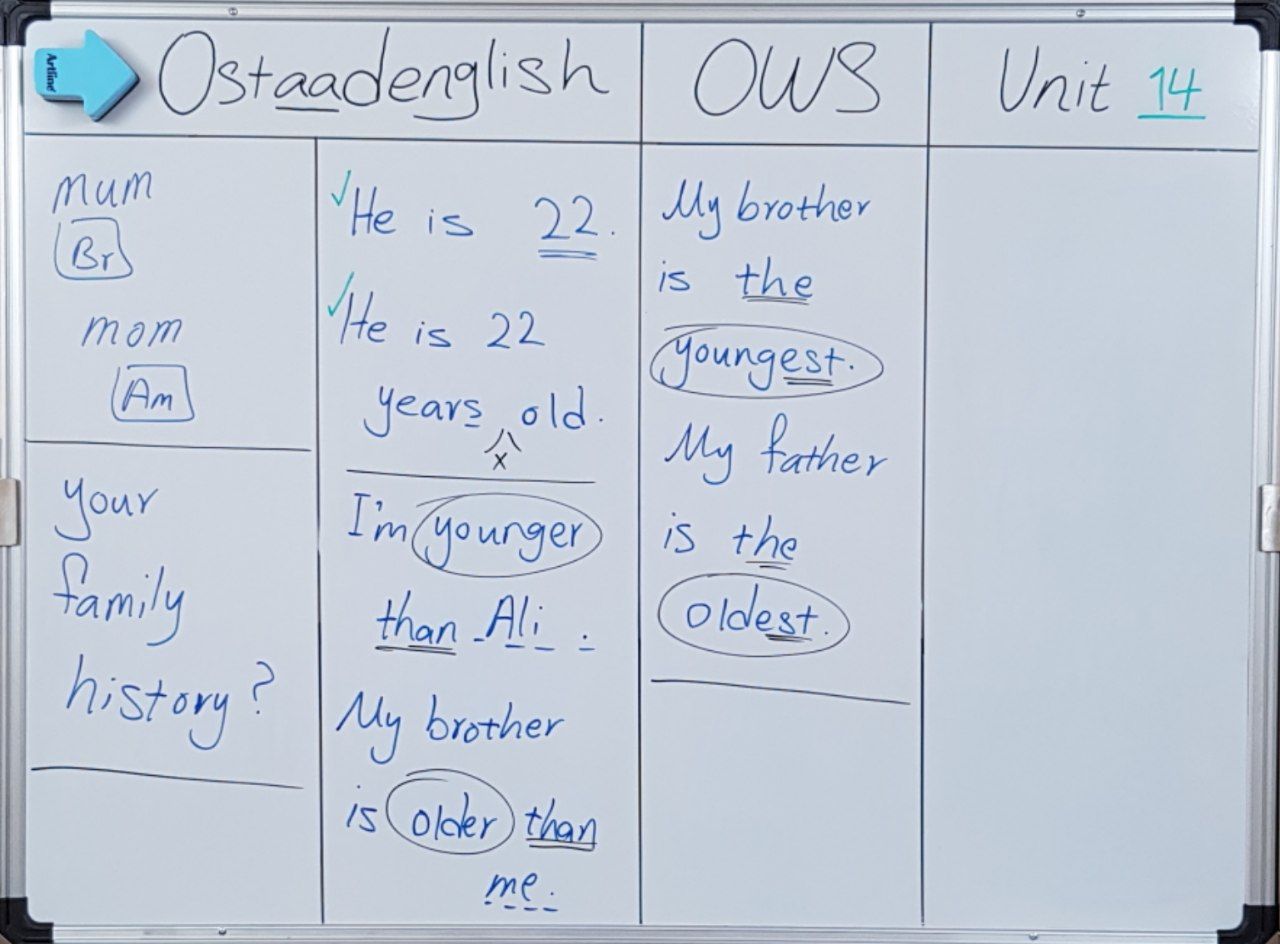 Artline
Ostaadenglish
OWS
Unit 14
mum
Br
mom
Am
your
family
history?
He is 22.
He is 22
years old.
x
I'm younger
than Ali.
My brother
is older than
me.
My brother
is the
youngest.
My father
is the
oldest.